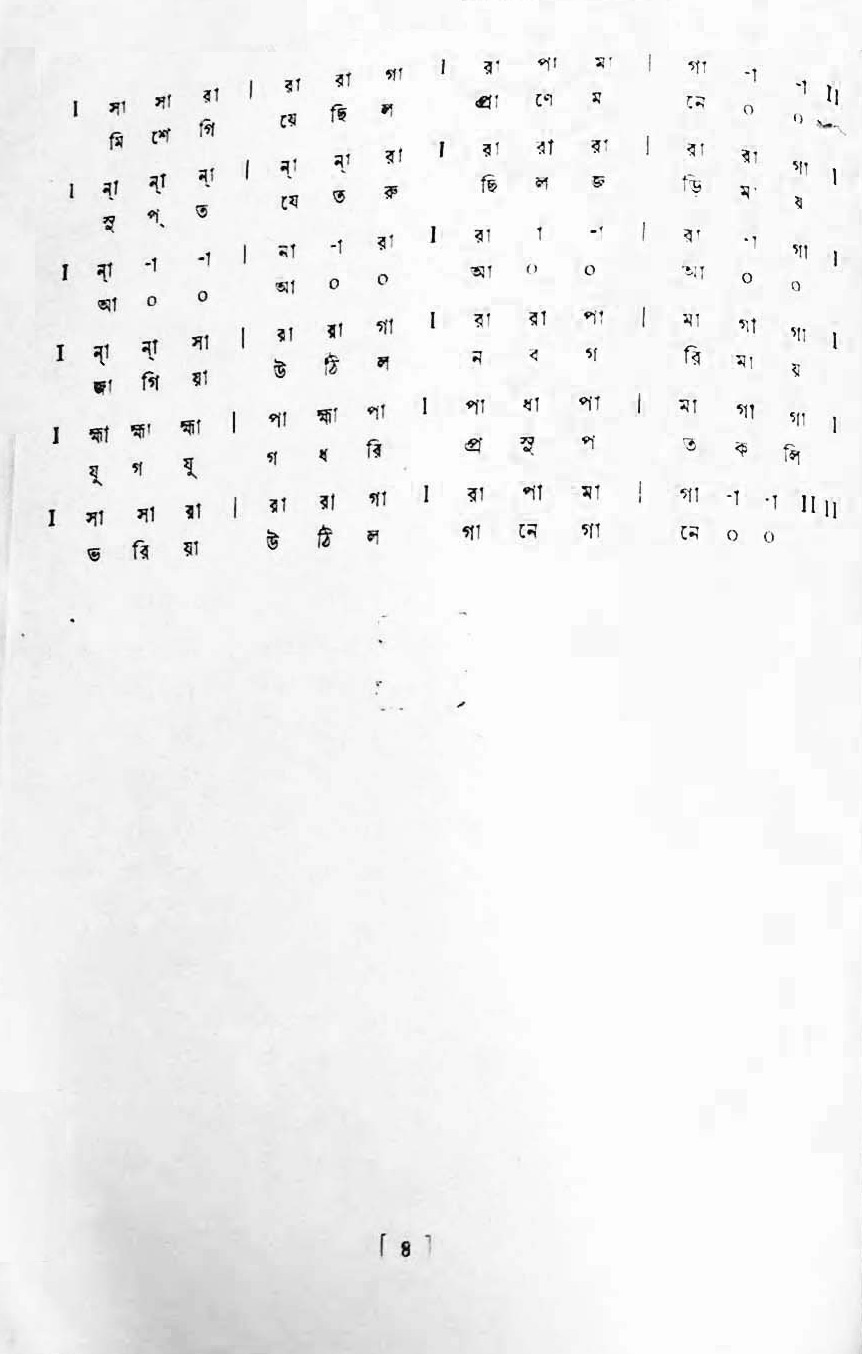 I সা সা রা | রা রা গা I রা পা মা | গা -া -া II
মি শে গি য়ে ছি ল প্রা ণে ম নে ০ ০
I ন্‌া ন্‌া ন্‌া | ন্‌া ন্‌া রা I রা রা রা | রা রা গা I
সু প্ ত যে ত রু ছি ল জ ড়ি ম য়
I ন্‌া -া -া | না -া রা I রা া -া | রা -া গা I
আ ০ ০ আ ০ ০ আ ০ ০ আ ০ ০
I ন্‌া ন্‌া সা | রা রা গা I রা রা পা | মা গা গা I
জা গি য়া উ ঠি ল ন ব গ রি মা য়
I হ্মা হ্মা হ্মা | পা হ্মা পা I পা ধা পা | মা গা গা I
যু গ যু গ ধ রি প্র সু প ত ক লি
I সা সা রা | রা রা গা I রা পা মা | গা -া -া II II
ভ রি য়া উ ঠি ল গা নে গা নে ০ ০
[ ৪ ]